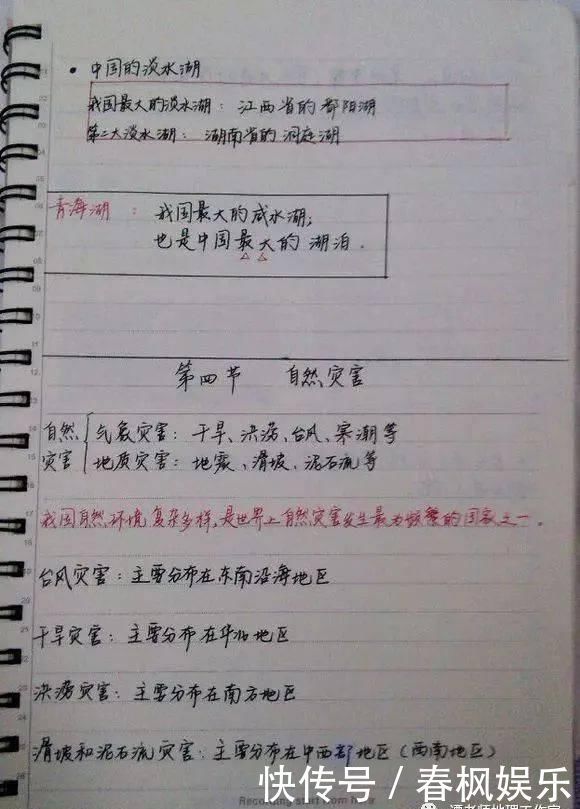 • 中国的淡水湖
我国最大的淡水湖：江西省的鄱阳湖
第二大淡水湖：湖南省的洞庭湖
青海湖：我国最大的咸水湖；
也是中国最大的湖泊.
第四节 自然灾害
自然 气象灾害：干旱、洪涝、台风、寒潮等
灾害 地质灾害：地震、滑坡、泥石流等
我国自然环境复杂多样,是世界上自然灾害发生最为频繁的国家之一。
台风灾害：主要分布在东南沿海地区
干旱灾害：主要分布在华北地区
洪涝灾害：主要分布在南方地区
滑坡和泥石流灾害：主要分布在中西部地区（西南地区）
快传号／春风娱乐
Recording start from